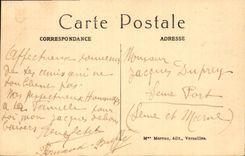 Carte Postale
CORRESPONDANCE
ADRESSE
Affectueux souvenir
de tes amis qui ne
t'oublient pas
Nos respectueux Hommages
à la famille pour
toi mon Jacques de bons
baisers
Monsieur
Jacques Duprey
Seine Port
(Seine et Marne)
Mme Moreau, édit., Versailles.